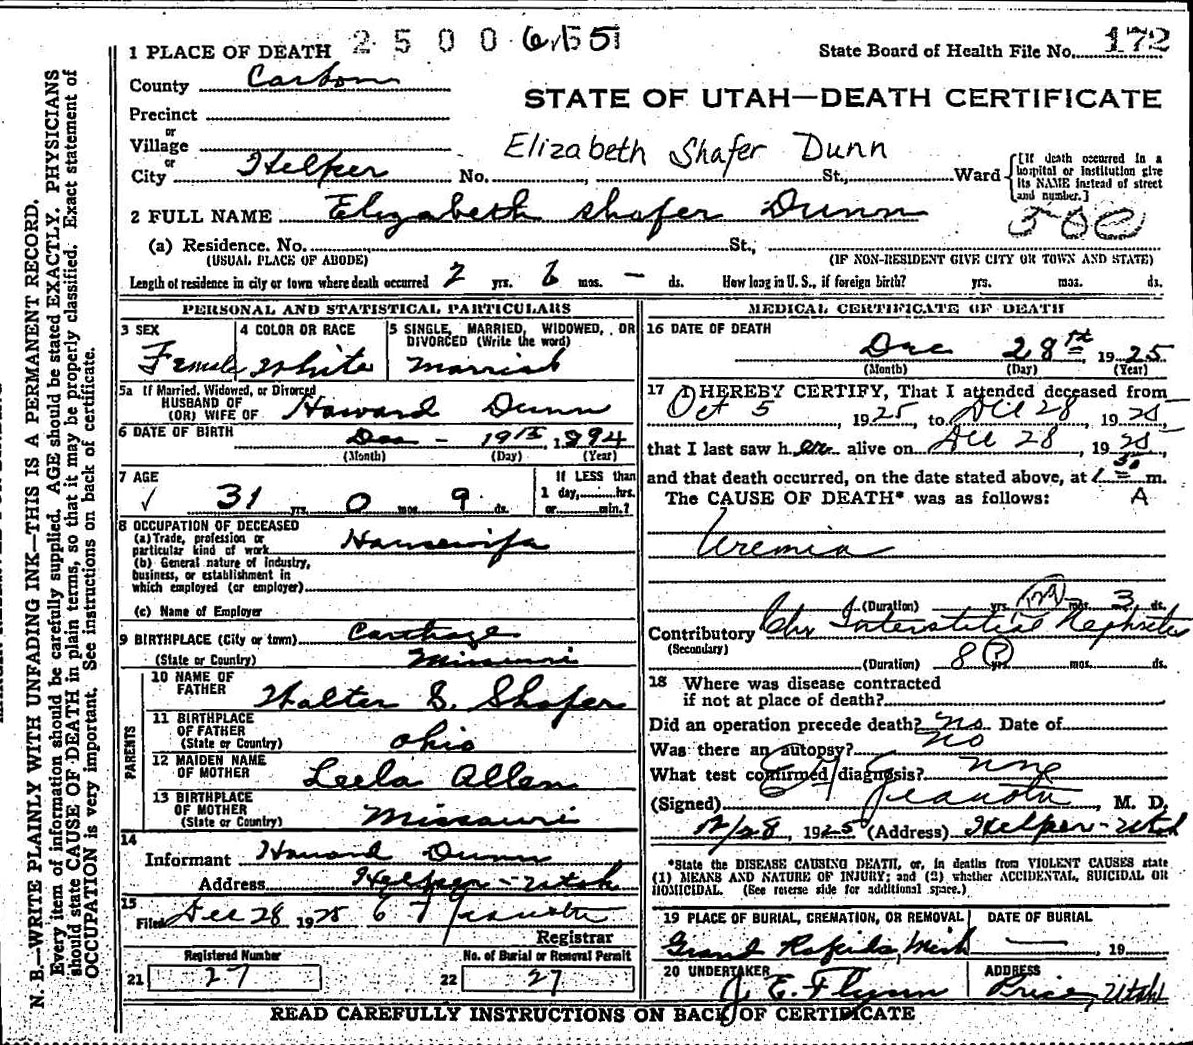 1 PLACE OF DEATH 2 5 0 0 6 155
State Board of Health File No. 172
County Carbon
STATE OF UTAH—DEATH CERTIFICATE
Precinct
or
Village
Elizabeth Shafer Dunn
or
City Helper No. St., Ward
[If death occurred in a
hospital or institution give
its NAME instead of street
and number.]
2 FULL NAME Elizabeth Shafer Dunn
500
(a) Residence. No. St.,
(USUAL PLACE OF ABODE) (IF NON-RESIDENT GIVE CITY OR TOWN AND STATE)
Length of residence in city or town where death occurred 2 yrs. 6 mos. - ds. How long in U. S., if foreign birth? yrs. mos. ds.
PERSONAL AND STATISTICAL PARTICULARS
3 SEX
Female
4 COLOR OR RACE
White
5 SINGLE, MARRIED, WIDOWED, OR
DIVORCED (Write the word)
Married
5a If Married, Widowed, or Divorced
HUSBAND OF
(OR) WIFE OF Howard Dunn
6 DATE OF BIRTH Dec - 19th 1894
(Month) (Day) (Year)
7 AGE
31 yrs. 0 mos. 9 ds.
If LESS than
1 day, hrs.
or min.?
8 OCCUPATION OF DECEASED
(a) Trade, profession or
particular kind of work Housewife
(b) General nature of industry,
business, or establishment in
which employed (or employer)
(c) Name of Employer
9 BIRTHPLACE (City or town) Carthage
(State or Country) Missouri
PARENTS
10 NAME OF
FATHER Walter S. Shafer
11 BIRTHPLACE
OF FATHER
(State or Country) Ohio
12 MAIDEN NAME
OF MOTHER Leela Allen
13 BIRTHPLACE
OF MOTHER
(State or Country) Missouri
14
Informant Howard Dunn
Address Helper - Utah
15
Filed Dec 28 1925
Registrar
Registered Number
21 27
No. of Burial or Removal Permit
22 27
MEDICAL CERTIFICATE OF DEATH
16 DATE OF DEATH
Dec 28th, 1925
(Month) (Day) (Year)
17 I HEREBY CERTIFY, That I attended deceased from
Oct 5 1925 to Dec 28 1925
that I last saw her alive on Dec 28, 1925,
and that death occurred, on the date stated above, at 1 30 m.
The CAUSE OF DEATH* was as follows: A
Uremia
(Duration) yrs. mos. 3 ds.
Contributory Chr Interstitial Nephritis
(Secondary)
(Duration) 8 (?) yrs. mos. ds.
18 Where was disease contracted
if not at place of death?
Did an operation precede death? No. Date of
Was there an autopsy? No
What test confirmed diagnosis?
(Signed) , M. D.
12/28, 1925 (Address) Helper - Utah
*State the DISEASE CAUSING DEATH, or, in deaths from VIOLENT CAUSES state
(1) MEANS AND NATURE OF INJURY; and (2) whether ACCIDENTAL, SUICIDAL OR
HOMICIDAL. (See reverse side for additional space.)
19 PLACE OF BURIAL, CREMATION, OR REMOVAL
Grand Rapids, Mich
DATE OF BURIAL
19
20 UNDERTAKER
J. E. Flynn
ADDRESS
Price, Utah
READ CAREFULLY INSTRUCTIONS ON BACK OF CERTIFICATE
N. B.—WRITE PLAINLY WITH UNFADING INK—THIS IS A PERMANENT RECORD.
Every item of information should be carefully supplied. AGE should be stated EXACTLY. PHYSICIANS
should state CAUSE OF DEATH in plain terms, so that it may be properly classified. Exact statement of
OCCUPATION is very important. See instructions on back of certificate.